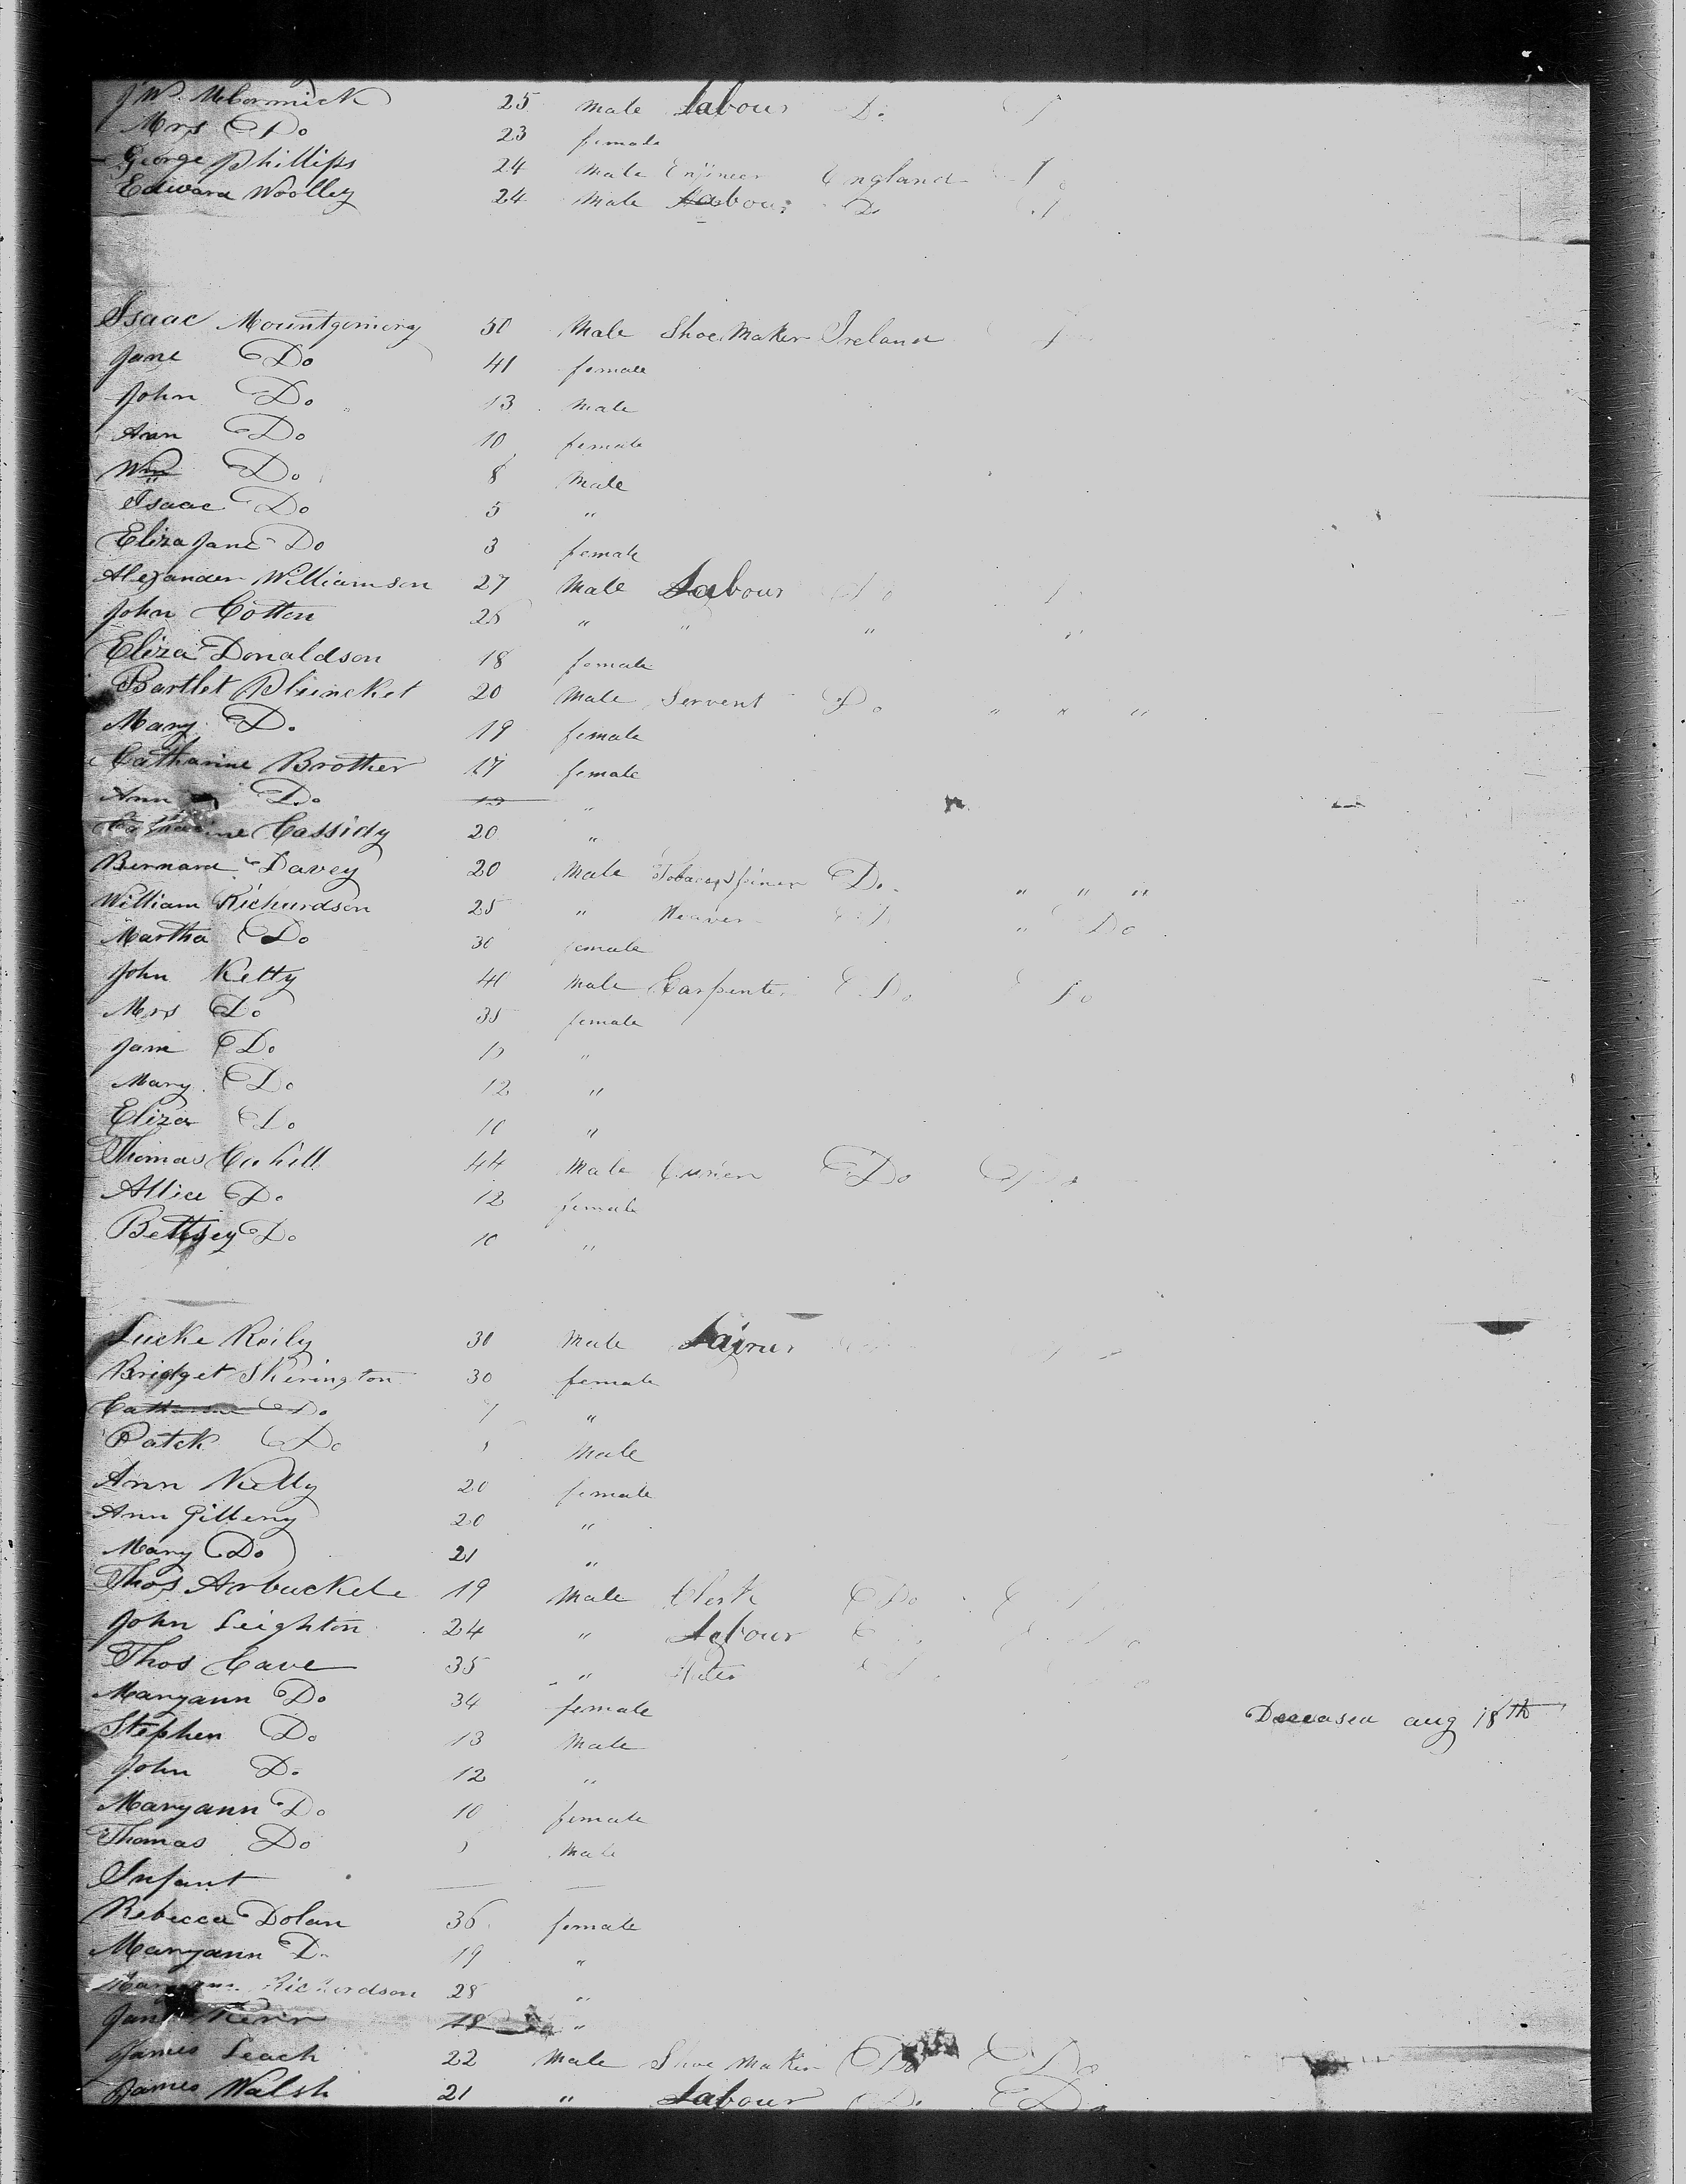 J W. McCormick 25 male Labour Do
Mrs Do 23 female
George Phillips 24 male Enjineer England
Edward Woolley 24 male Labour Do
Isaac Mountgomery 50 Male Shoe Maker Ireland
Jane Do 41 female
John Do 13 male
Ann Do 10 female
Wm Do 8 Male
Isaac Do 5 "
Eliza Jane Do 3 female
Alexander Williamson 27 Male Labour Do
John Cotton 26 " " " "
Eliza Donaldson 18 female
Bartlet Pluncket 20 Male Servent Do " " "
Mary Do 19 female
Catharine Brother 17 female
Ann Do "
Catharine Cassidy 20 "
Bernard Davey 20 Male Tobaccospiner Do " " "
William Richurdson 25 " Weaver Do " Do
Martha Do 30 female
John Ketty 40 Male Carpenter Do Do
Mrs Do 35 female
Jane Do "
Mary Do 12 "
Eliza Do 10 "
Thomas Cahill 44 Male Do Do
Allice Do 12 female
Bettsey Do 10 "
Lucke Reily 30 Male
Bridget Skerington 30 female
Catharine Do 7 "
Patck Do Male
Ann Kelly 20 female
Ann Gilleny 20 "
Mary Do 21 "
Thos Arbuckele 19 Male Clerk Do
John Leighton 24 " Labour
Thos Cave 35 "
Maryann Do 34 female Deceased aug 18th
Stephen Do 13 Male
John Do 12 "
Maryann Do 10 female
Thomas Do Male
Infant
Rebecca Dolan 36 female
Maryann Do 19 "
Richardson 28 "
Jane Kerin 18 "
James Leach 22 Male Shoe Maker Do Do
James Walsh 21 " Labour Do Do